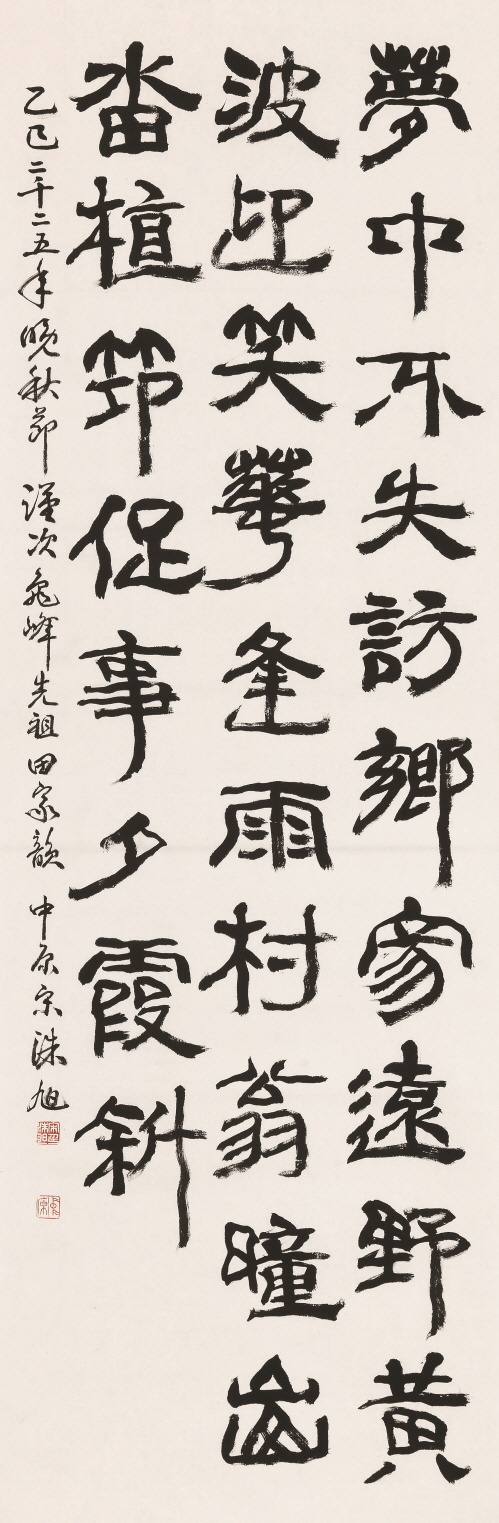 夢中不失訪鄉家遠野黃
波迎笑華逢雨村翁
畓植節促事夕霞斜
乙巳二千二五年晚秋節 謹次龜峰先祖田家韻 中原宋洙旭